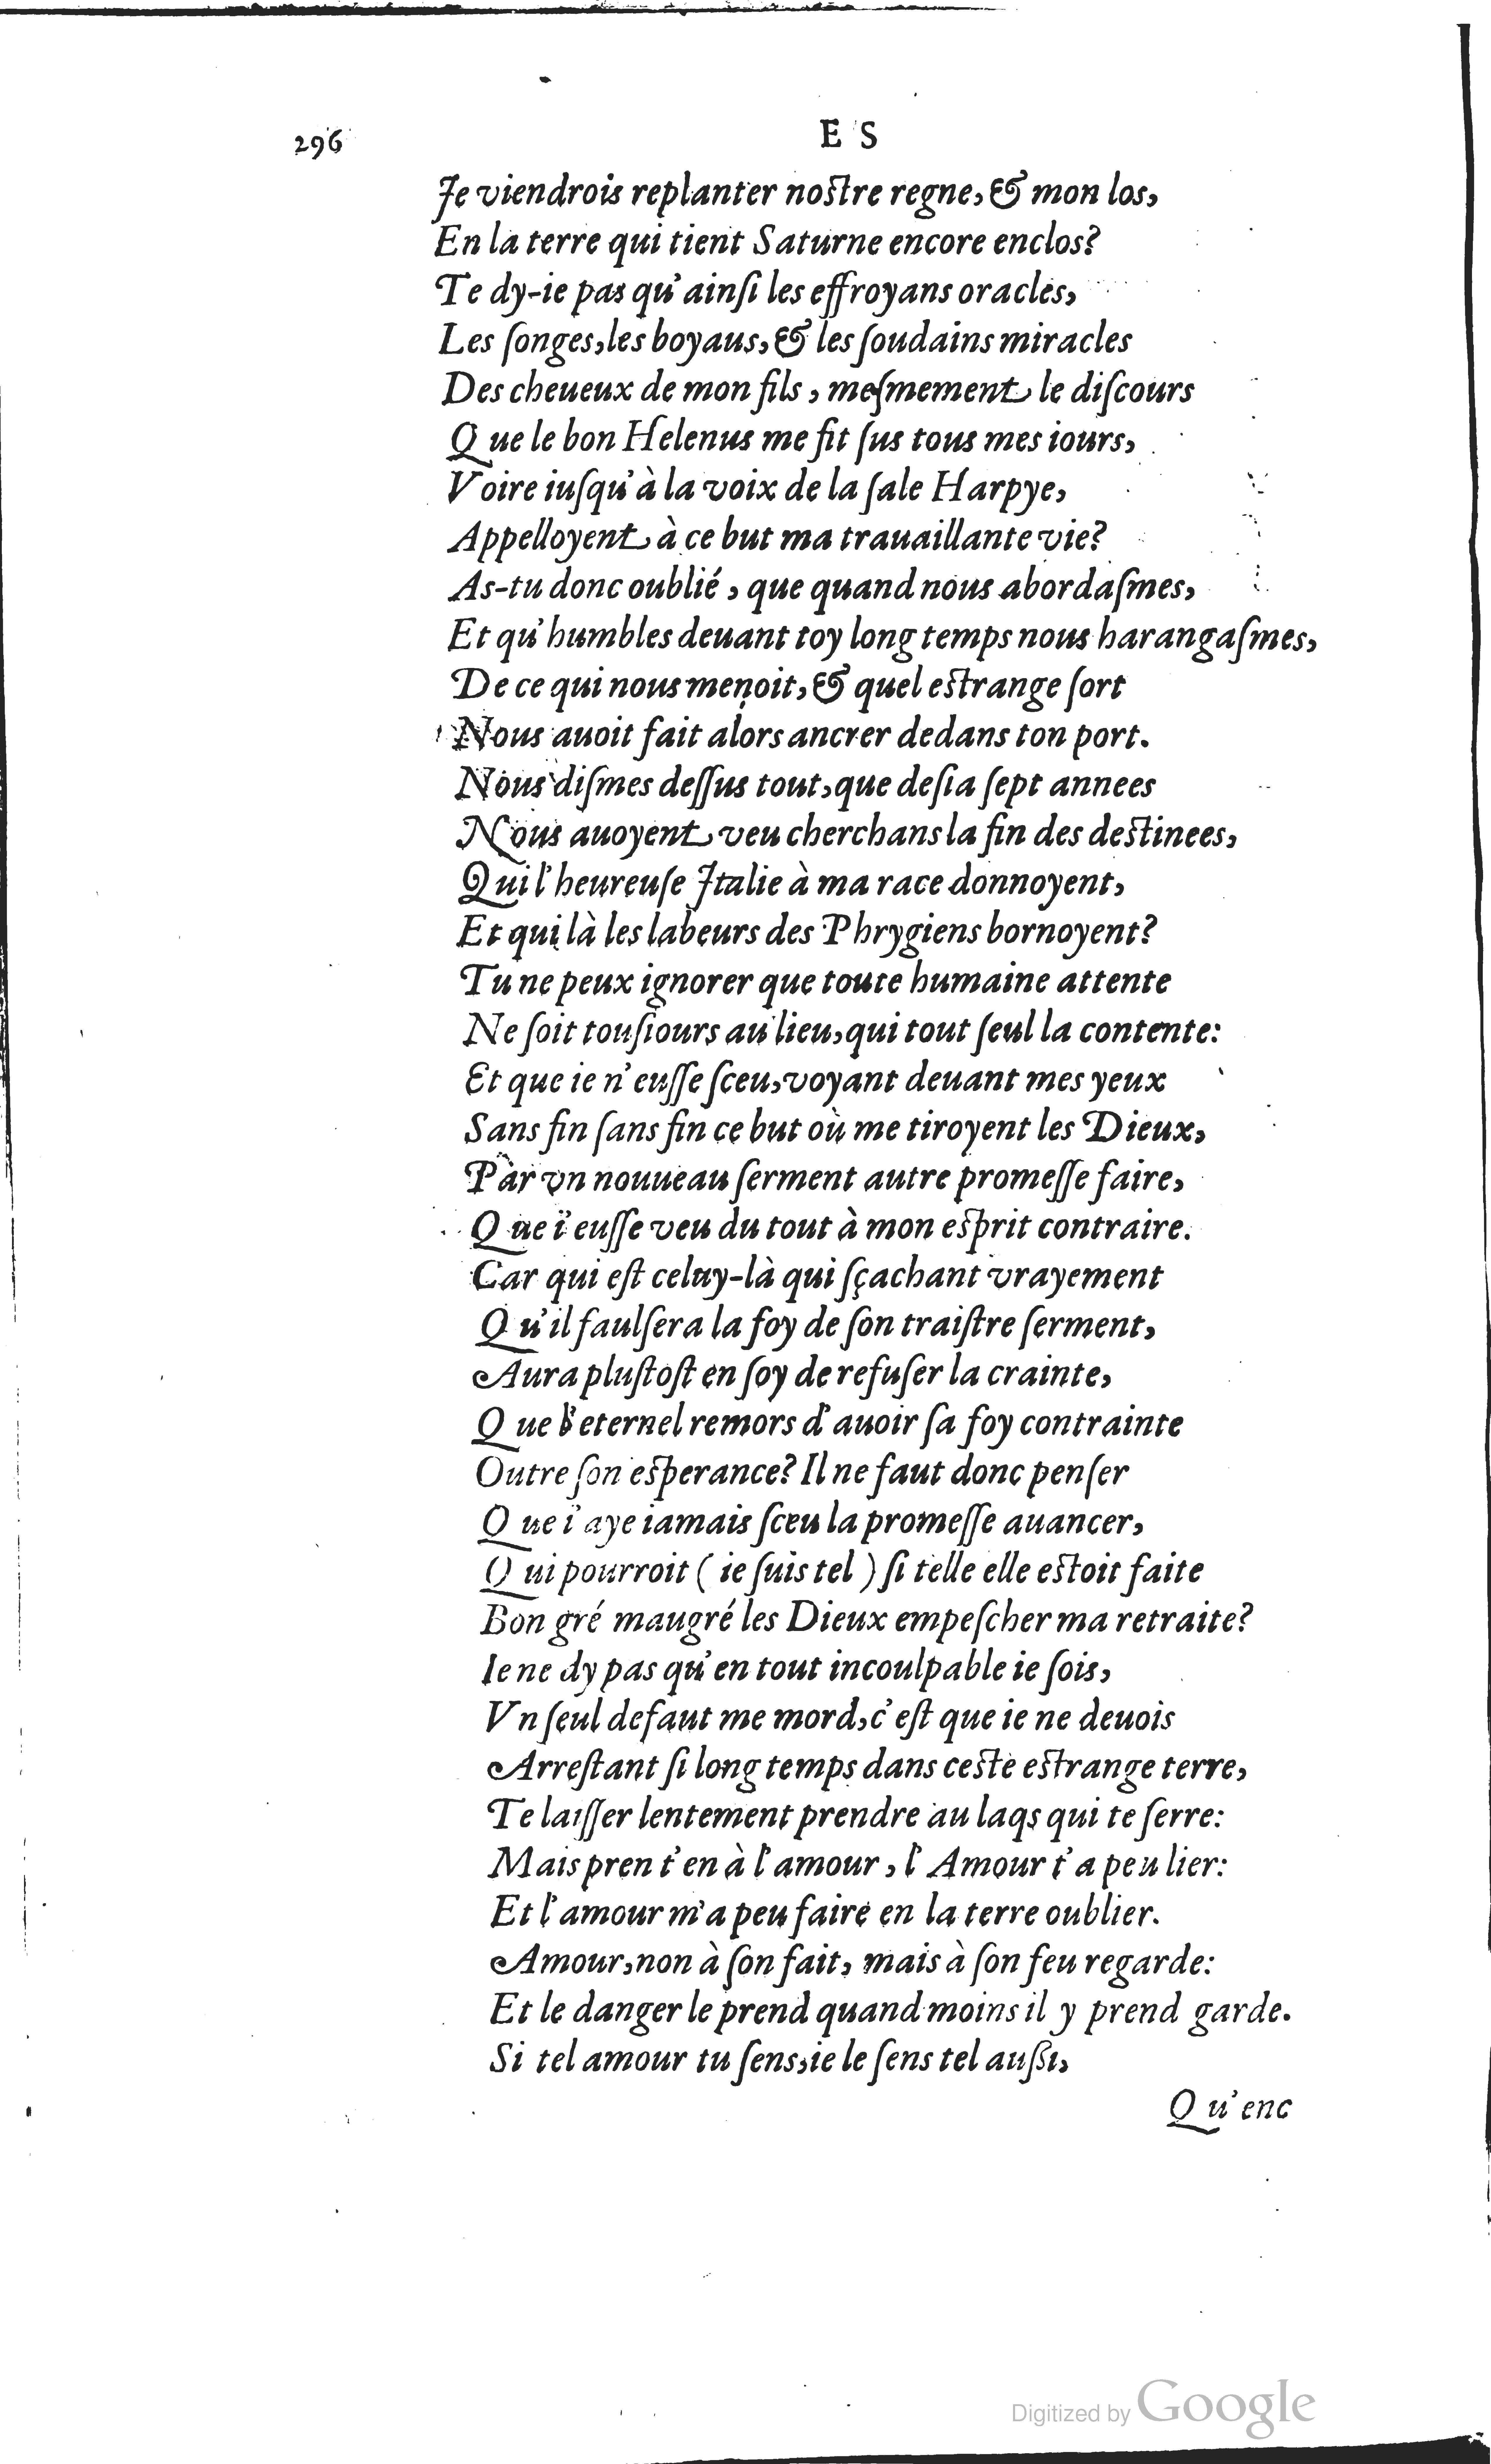 296 E S
Je viendrois replanter nostre regne, & mon los,
En la terre qui tient Saturne encore enclos?
Te dy-ie pas qu'ainſi les effroyans oracles,
Les ſonges, les boyaus, & les ſoudains miracles
Des cheueux de mon fils, meſmement le diſcours
Que le bon Helenus me fit ſus tous mes iours,
Voire iuſqu'à la voix de la ſale Harpye,
Appelloyent à ce but ma trauaillante vie?
As-tu donc oublié, que quand nous abordaſmes,
Et qu'humbles deuant toy long temps nous harangaſmes,
De ce qui nous menoit, & quel estrange ſort
Nous auoit fait alors ancrer dedans ton port.
Nous diſmes deſſus tout, que deſia ſept annees
Nous auoyent veu cherchans la fin des destinees,
Qui l'heureuſe Italie à ma race donnoyent,
Et qui là les labeurs des Phrygiens bornoyent?
Tu ne peux ignorer que toute humaine attente
Ne ſoit touſiours au lieu, qui tout ſeul la contente:
Et que ie n'euſſe ſceu, voyant deuant mes yeux
Sans fin ſans fin ce but où me tiroyent les Dieux,
Par vn nouueau ſerment autre promeſſe faire,
Que i'euſſe veu du tout à mon esprit contraire.
Car qui eſt celuy-là qui ſçachant vrayement
Qu'il faulſera la foy de ſon traiſtre ſerment,
Aura pluſtoſt en ſoy de refuſer la crainte,
Que l'eternel remors d'auoir ſa foy contrainte
Outre ſon esperance? Il ne faut donc penſer
Que i'aye iamais ſceu la promeſſe auancer,
Qui pourroit (ie ſuis tel) ſi telle elle estoit faite
Bon gré maugré les Dieux empeſcher ma retraite?
Ie ne dy pas qu'en tout incoulpable ie ſois,
Vn ſeul defaut me mord, c'eſt que ie ne deuois
Arreſtant ſi long temps dans ceste estrange terre,
Te laiſſer lentement prendre au laqs qui te ſerre:
Mais pren t'en à l'amour, l'Amour t'a peu lier:
Et l'amour m'a peu faire en la terre oublier.
Amour, non à ſon fait, mais à ſon feu regarde:
Et le danger le prend quand moins il y prend garde.
Si tel amour tu ſens, ie le ſens tel auſsi,
Qu'enc
Digitized by Google